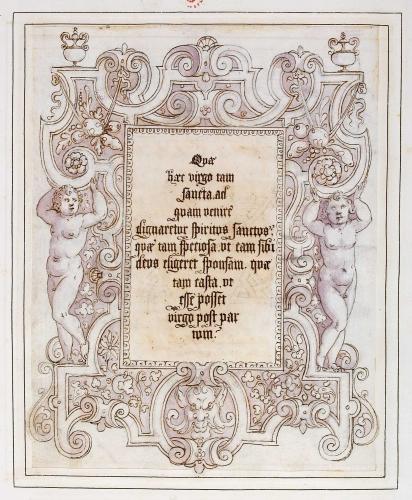 Quæ
hæc virgo tam
sancta. ad
quam venire
dignaretur spiritus sanctus?
quæ tam speciosa. vt eam sibi
deus eligeret sponsam. quæ
tam casta. vt
esse posset
virgo post par
tum?